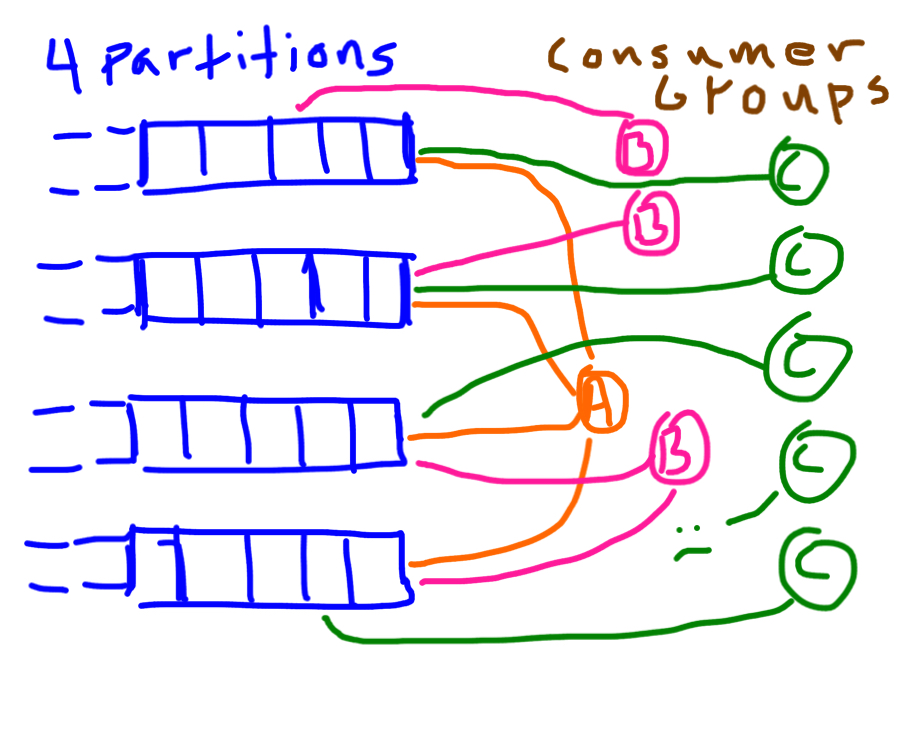 4 partitions
Consumer
Groups
B
C
B
C
C
A
B
C
C